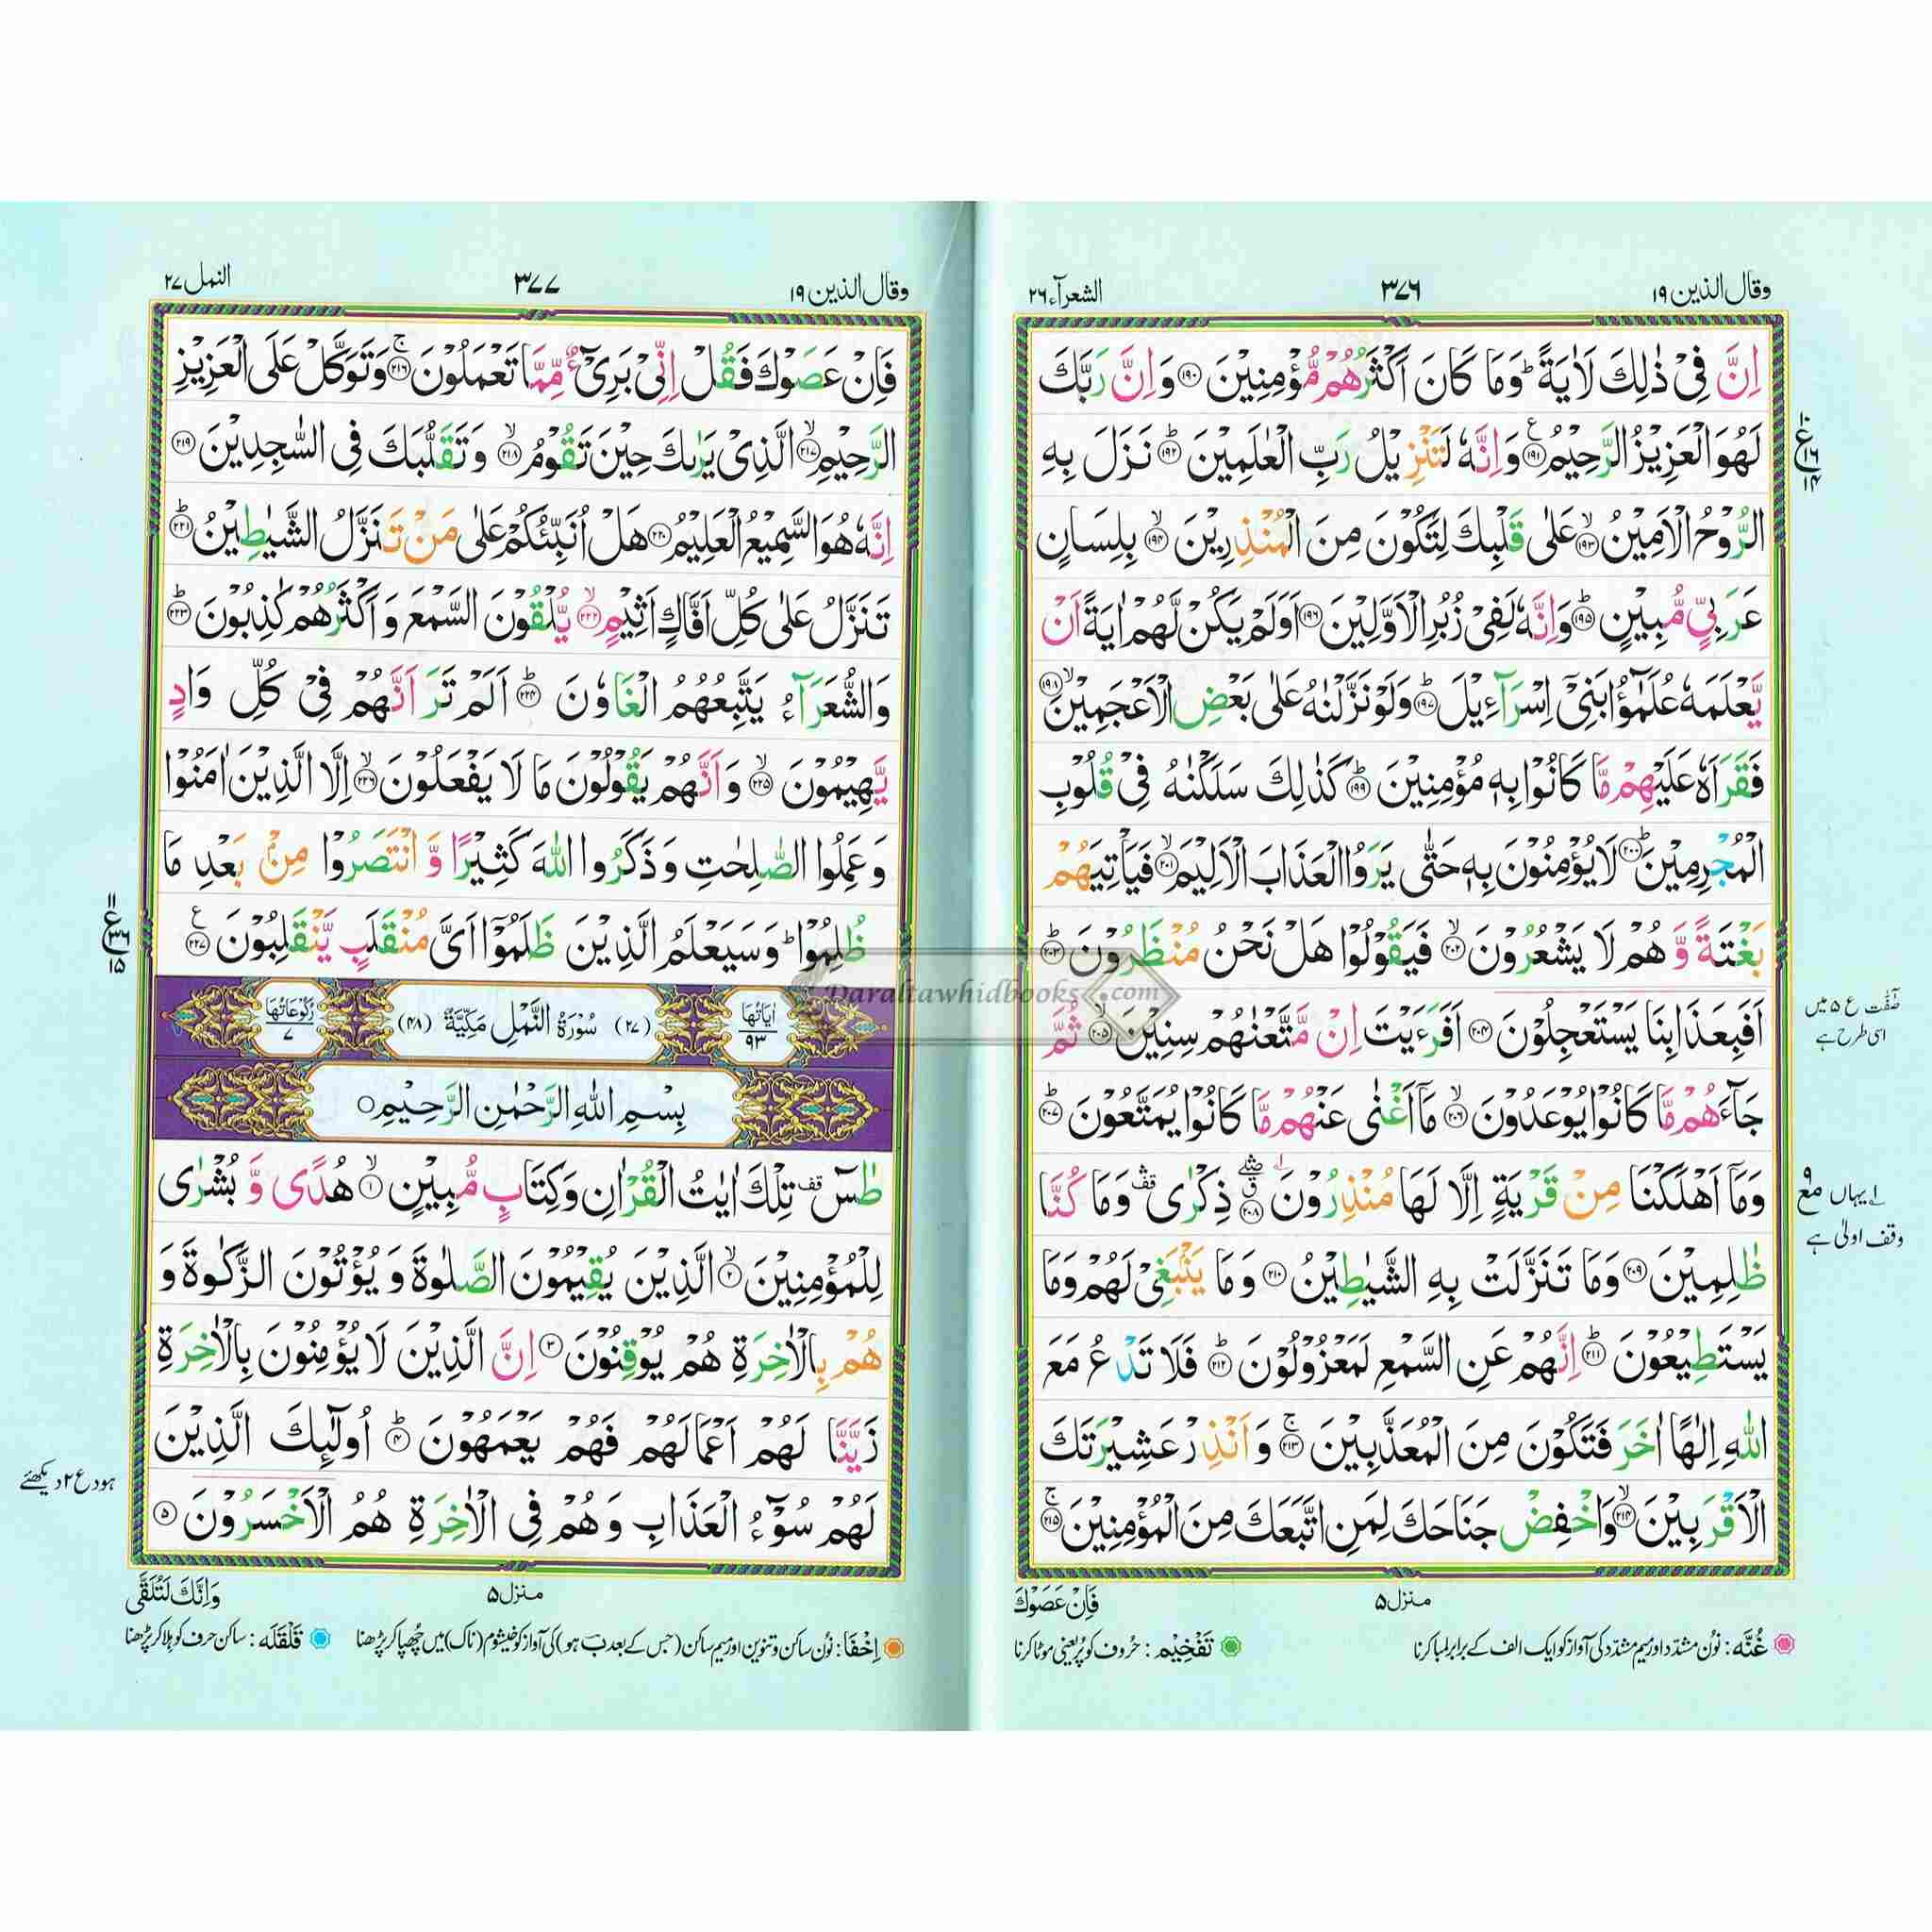 وقال الذین ۱۹
۳۷۶
الشعرآء ۲۶
اِنَّ فِیْ ذٰلِكَ لَاٰیَةً ؕ وَمَا كَانَ اَكْثَرُهُمْ مُّؤْمِنِیْنَ ۱۹۰ وَاِنَّ رَبَّكَ
لَهُوَ الْعَزِیْزُ الرَّحِیْمُ ۱۹۱ وَاِنَّهٗ لَتَنْزِیْلُ رَبِّ الْعٰلَمِیْنَ ۱۹۲ نَزَلَ بِهِ
الرُّوْحُ الْاَمِیْنُ ۱۹۳ عَلٰی قَلْبِكَ لِتَكُوْنَ مِنَ الْمُنْذِرِیْنَ ۱۹۴ بِلِسَانٍ
عَرَبِیٍّ مُّبِیْنٍ ۱۹۵ وَاِنَّهٗ لَفِیْ زُبُرِ الْاَوَّلِیْنَ ۱۹۶ اَوَلَمْ یَكُنْ لَّهُمْ اٰیَةً اَنْ
یَّعْلَمَهٗ عُلَمٰٓؤُا بَنِیْۤ اِسْرَآءِیْلَ ۱۹۷ وَلَوْ نَزَّلْنٰهُ عَلٰی بَعْضِ الْاَعْجَمِیْنَ ۱۹۸
فَقَرَاَهٗ عَلَیْهِمْ مَّا كَانُوْا بِهٖ مُؤْمِنِیْنَ ۱۹۹ كَذٰلِكَ سَلَكْنٰهُ فِیْ قُلُوْبِ
الْمُجْرِمِیْنَ ۲۰۰ لَا یُؤْمِنُوْنَ بِهٖ حَتّٰی یَرَوُا الْعَذَابَ الْاَلِیْمَ ۲۰۱ فَیَاْتِیَهُمْ
بَغْتَةً وَّ هُمْ لَا یَشْعُرُوْنَ ۲۰۲ فَیَقُوْلُوْا هَلْ نَحْنُ مُنْظَرُوْنَ ۲۰۳
اَفَبِعَذَابِنَا یَسْتَعْجِلُوْنَ ۲۰۴ اَفَرَءَیْتَ اِنْ مَّتَّعْنٰهُمْ سِنِیْنَ ۲۰۵ ثُمَّ
جَآءَهُمْ مَّا كَانُوْا یُوْعَدُوْنَ ۲۰۶ مَاۤ اَغْنٰی عَنْهُمْ مَّا كَانُوْا یُمَتَّعُوْنَ ۲۰۷
وَمَاۤ اَهْلَكْنَا مِنْ قَرْیَةٍ اِلَّا لَهَا مُنْذِرُوْنَ ۲۰۸ ذِكْرٰی وَمَا كُنَّا
ظٰلِمِیْنَ ۲۰۹ وَمَا تَنَزَّلَتْ بِهِ الشَّیٰطِیْنُ ۲۱۰ وَمَا یَنْۢبَغِیْ لَهُمْ وَمَا
یَسْتَطِیْعُوْنَ ۲۱۱ اِنَّهُمْ عَنِ السَّمْعِ لَمَعْزُوْلُوْنَ ۲۱۲ فَلَا تَدْعُ مَعَ
اللّٰهِ اِلٰهًا اٰخَرَ فَتَكُوْنَ مِنَ الْمُعَذَّبِیْنَ ۲۱۳ وَاَنْذِرْ عَشِیْرَتَكَ
الْاَقْرَبِیْنَ ۲۱۴ وَاخْفِضْ جَنَاحَكَ لِمَنِ اتَّبَعَكَ مِنَ الْمُؤْمِنِیْنَ ۲۱۵
۱۰
ع
۱۶
۱۴
صٰٓفّٰت ع ۵ میں
اسی طرح ہے
۱ یہاں مع ۹
وقف اولٰی ہے
منزل ۵
فَاِنْ عَصَوْكَ
غُنَّه : نون مشدد اور میم مشدد کی آواز کو ایک الف کے برابر لمبا کرنا
تَفْخِیْم : حروف کو پُر یعنی موٹا کرنا
وقال الذین ۱۹
۳۷۷
النمل ۲۷
فَاِنْ عَصَوْكَ فَقُلْ اِنِّیْ بَرِیْٓءٌ مِّمَّا تَعْمَلُوْنَ ۲۱۶ وَتَوَكَّلْ عَلَی الْعَزِیْزِ
الرَّحِیْمِ ۲۱۷ الَّذِیْ یَرٰىكَ حِیْنَ تَقُوْمُ ۲۱۸ وَتَقَلُّبَكَ فِی السّٰجِدِیْنَ ۲۱۹
اِنَّهٗ هُوَ السَّمِیْعُ الْعَلِیْمُ ۲۲۰ هَلْ اُنَبِّئُكُمْ عَلٰی مَنْ تَنَزَّلُ الشَّیٰطِیْنُ ۲۲۱
تَنَزَّلُ عَلٰی كُلِّ اَفَّاكٍ اَثِیْمٍ ۲۲۲ یُّلْقُوْنَ السَّمْعَ وَاَكْثَرُهُمْ كٰذِبُوْنَ ۲۲۳
وَالشُّعَرَآءُ یَتَّبِعُهُمُ الْغَاوٗنَ ۲۲۴ اَلَمْ تَرَ اَنَّهُمْ فِیْ كُلِّ وَادٍ
یَّهِیْمُوْنَ ۲۲۵ وَاَنَّهُمْ یَقُوْلُوْنَ مَا لَا یَفْعَلُوْنَ ۲۲۶ اِلَّا الَّذِیْنَ اٰمَنُوْا
وَعَمِلُوا الصّٰلِحٰتِ وَذَكَرُوا اللّٰهَ كَثِیْرًا وَّ انْتَصَرُوْا مِنْۢ بَعْدِ مَا
ظُلِمُوْا ؕ وَسَیَعْلَمُ الَّذِیْنَ ظَلَمُوْۤا اَیَّ مُنْقَلَبٍ یَّنْقَلِبُوْنَ ۲۲۷
اٰیَاتُهَا ۹۳
(۲۷) سُوْرَةُ النَّمْلِ مَكِّیَّةٌ (۴۸)
رُكُوْعَاتُهَا ۷
بِسْمِ اللّٰهِ الرَّحْمٰنِ الرَّحِیْمِ
طٰسٓ قف تِلْكَ اٰیٰتُ الْقُرْاٰنِ وَكِتَابٍ مُّبِیْنٍ ۱ هُدًی وَّ بُشْرٰی
لِلْمُؤْمِنِیْنَ ۲ الَّذِیْنَ یُقِیْمُوْنَ الصَّلٰوةَ وَیُؤْتُوْنَ الزَّكٰوةَ وَ
هُمْ بِالْاٰخِرَةِ هُمْ یُوْقِنُوْنَ ۳ اِنَّ الَّذِیْنَ لَا یُؤْمِنُوْنَ بِالْاٰخِرَةِ
زَیَّنَّا لَهُمْ اَعْمَالَهُمْ فَهُمْ یَعْمَهُوْنَ ۴ اُولٰٓئِكَ الَّذِیْنَ
لَهُمْ سُوْٓءُ الْعَذَابِ وَهُمْ فِی الْاٰخِرَةِ هُمُ الْاَخْسَرُوْنَ ۵
۱۱
ع
۳۶
۱۵
ہود ع ۲ دیکھئے
منزل ۵
وَاِنَّكَ لَتُلَقَّی
اِخْفَا : نون ساکن و تنوین اور میم ساکن (جس کے بعد ب ہو) کی آواز کو خیشوم (ناک) میں چھپا کر پڑھنا
قَلْقَلَه : ساکن حرف کو ہلا کر پڑھنا
Daraltawhidbooks.com